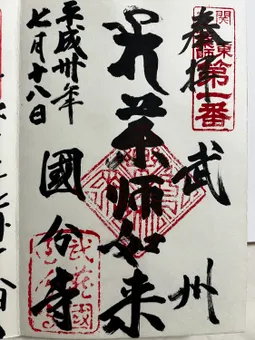 関東
第一番
奉拝
武州
薬師如来
國分寺
平成卅年
七月十八日